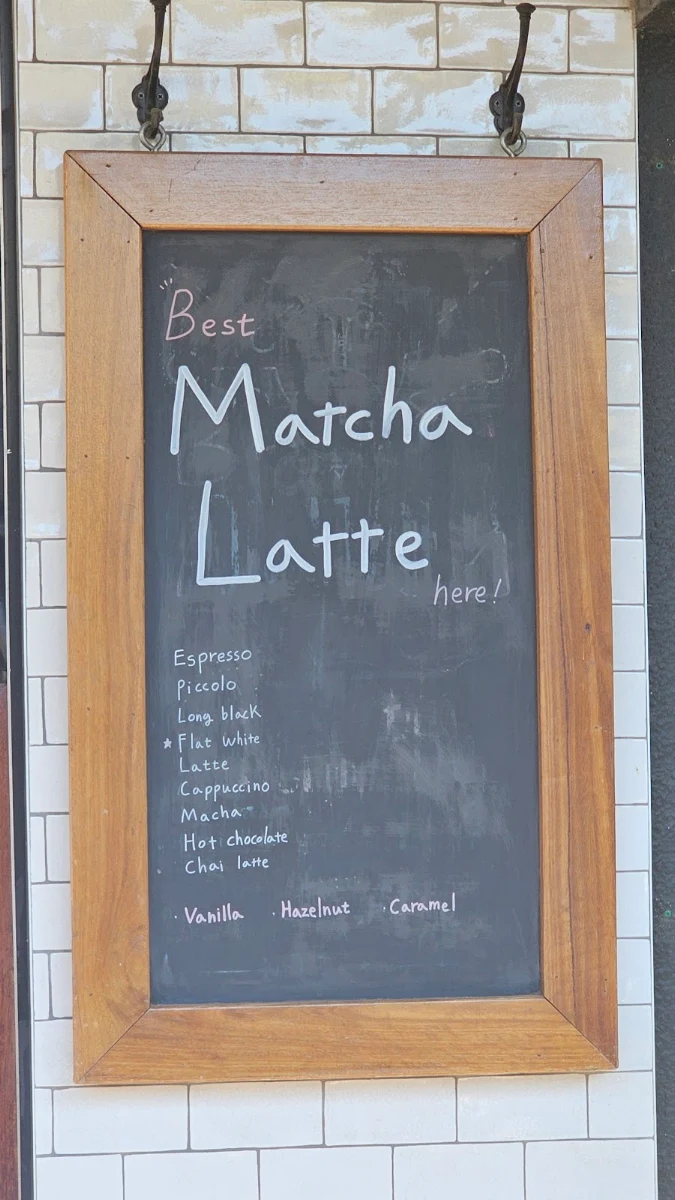 Best
Matcha
Latte
here!
Espresso
Piccolo
Long black
★ Flat white
Latte
Cappuccino
Macha
Hot chocolate
Chai latte
· Vanilla · Hazelnut · Caramel